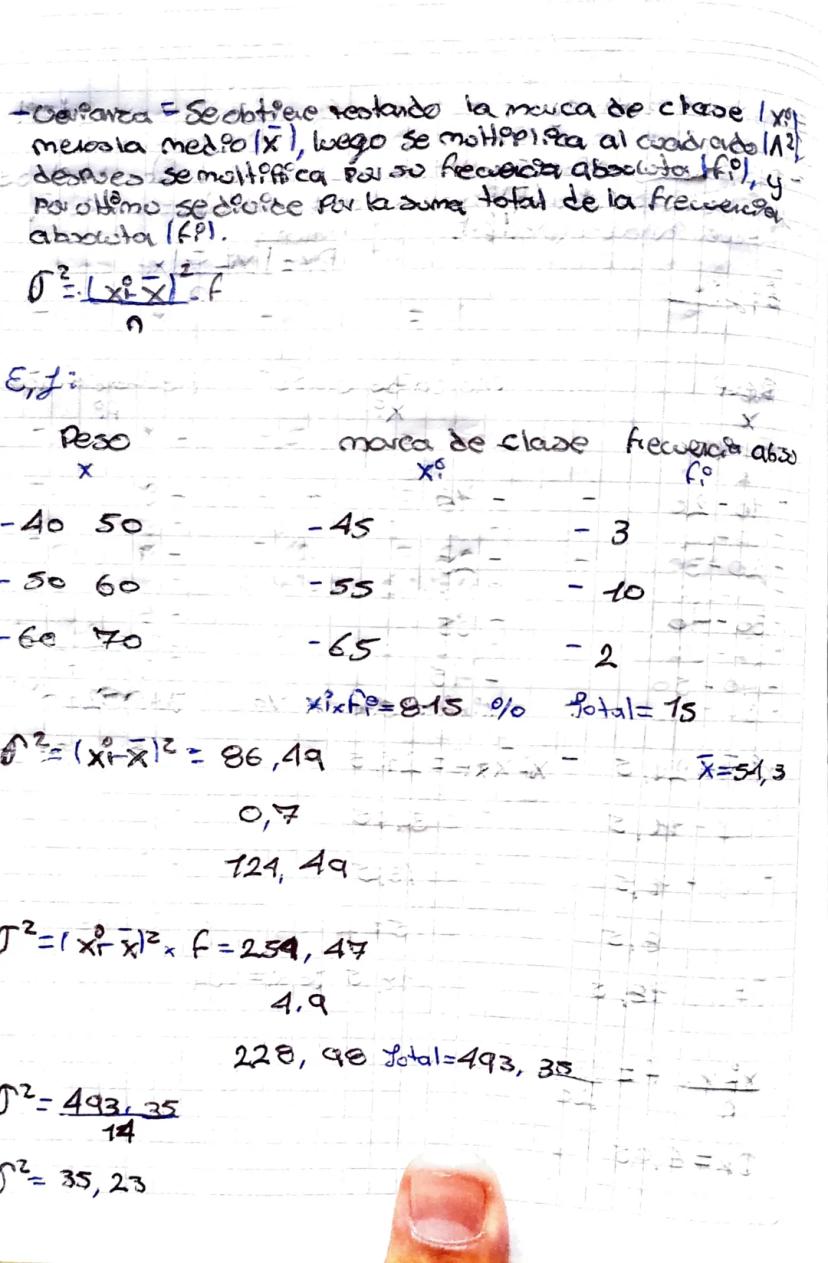 - Varianza = Se obtiene restando la marca de clase (xi)
menos la medio (x̄), luego se moltiplica al cuadrado (^2)
despues se moltiplica por su frecuencia absoluta (fi), y
por oltimo se divide por la suma total de la frecuencia
absoluta (fi).
σ² = (xi - x̄)² . f
n
E,j:
Peso marca de clase frecuencia abso
x xi fi
- 40 50 - 45 - 3
- 50 60 - 55 - 10
- 60 70 - 65 - 2
xi x fi = 815 % total = 15
σ² = (xi - x̄)² = 86,49 x̄ = 54,3
0,7
124,49
σ² = (xi - x̄)² x f = 259,47
4.9
228,98 total = 493,35
σ² = 493,35
14
σ² = 35,23